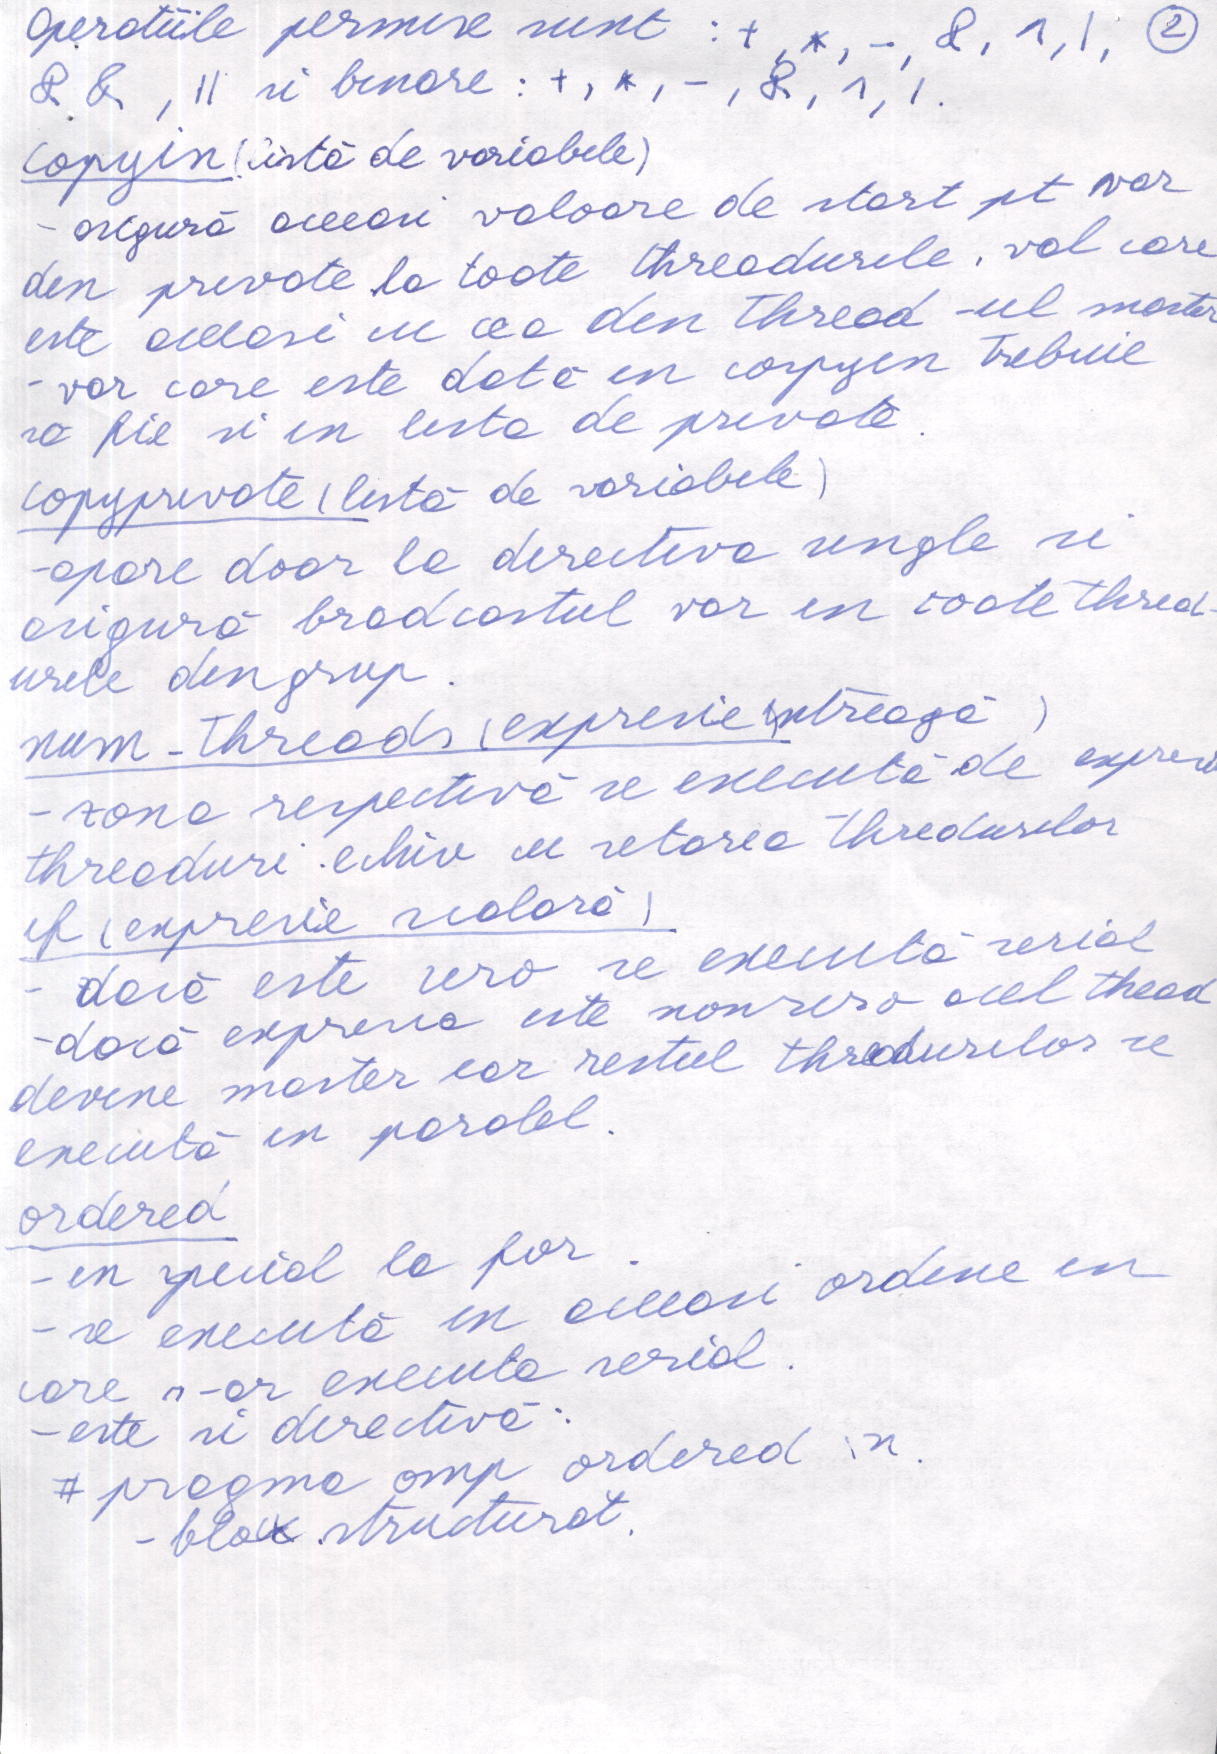 Operatiile permise sunt : +, *, -, &, ^, |, 2
&&, || si binare : +, *, -, &, ^, |.
copyin (listă de variabile)
- asigură aceeasi valoare de start pt var
din private la toate threadurile, val care
este aceeasi cu cea din thread-ul master
- var care este dată in copyin trebuie
să fie si in lista de private.
copyprivate (listă de variabile)
- apare doar la directiva single si
asigură brodcastul var in toate thread-
urile din grup.
num_threads (expresie intreagă)
- zona respectivă se execută de expresie
threaduri. echiv cu setarea thredurilor
if (expresie scalară)
- dacă este zero se execută serial
- dacă expresia este nonzero acel thead
devine master iar restul thredurilor se
execută in paralel.
ordered
- in special la for.
- se execută in aceeasi ordine in
care s-ar executa serial.
- este si directivă:
# pragma omp ordered \n.
- bloc structurat.